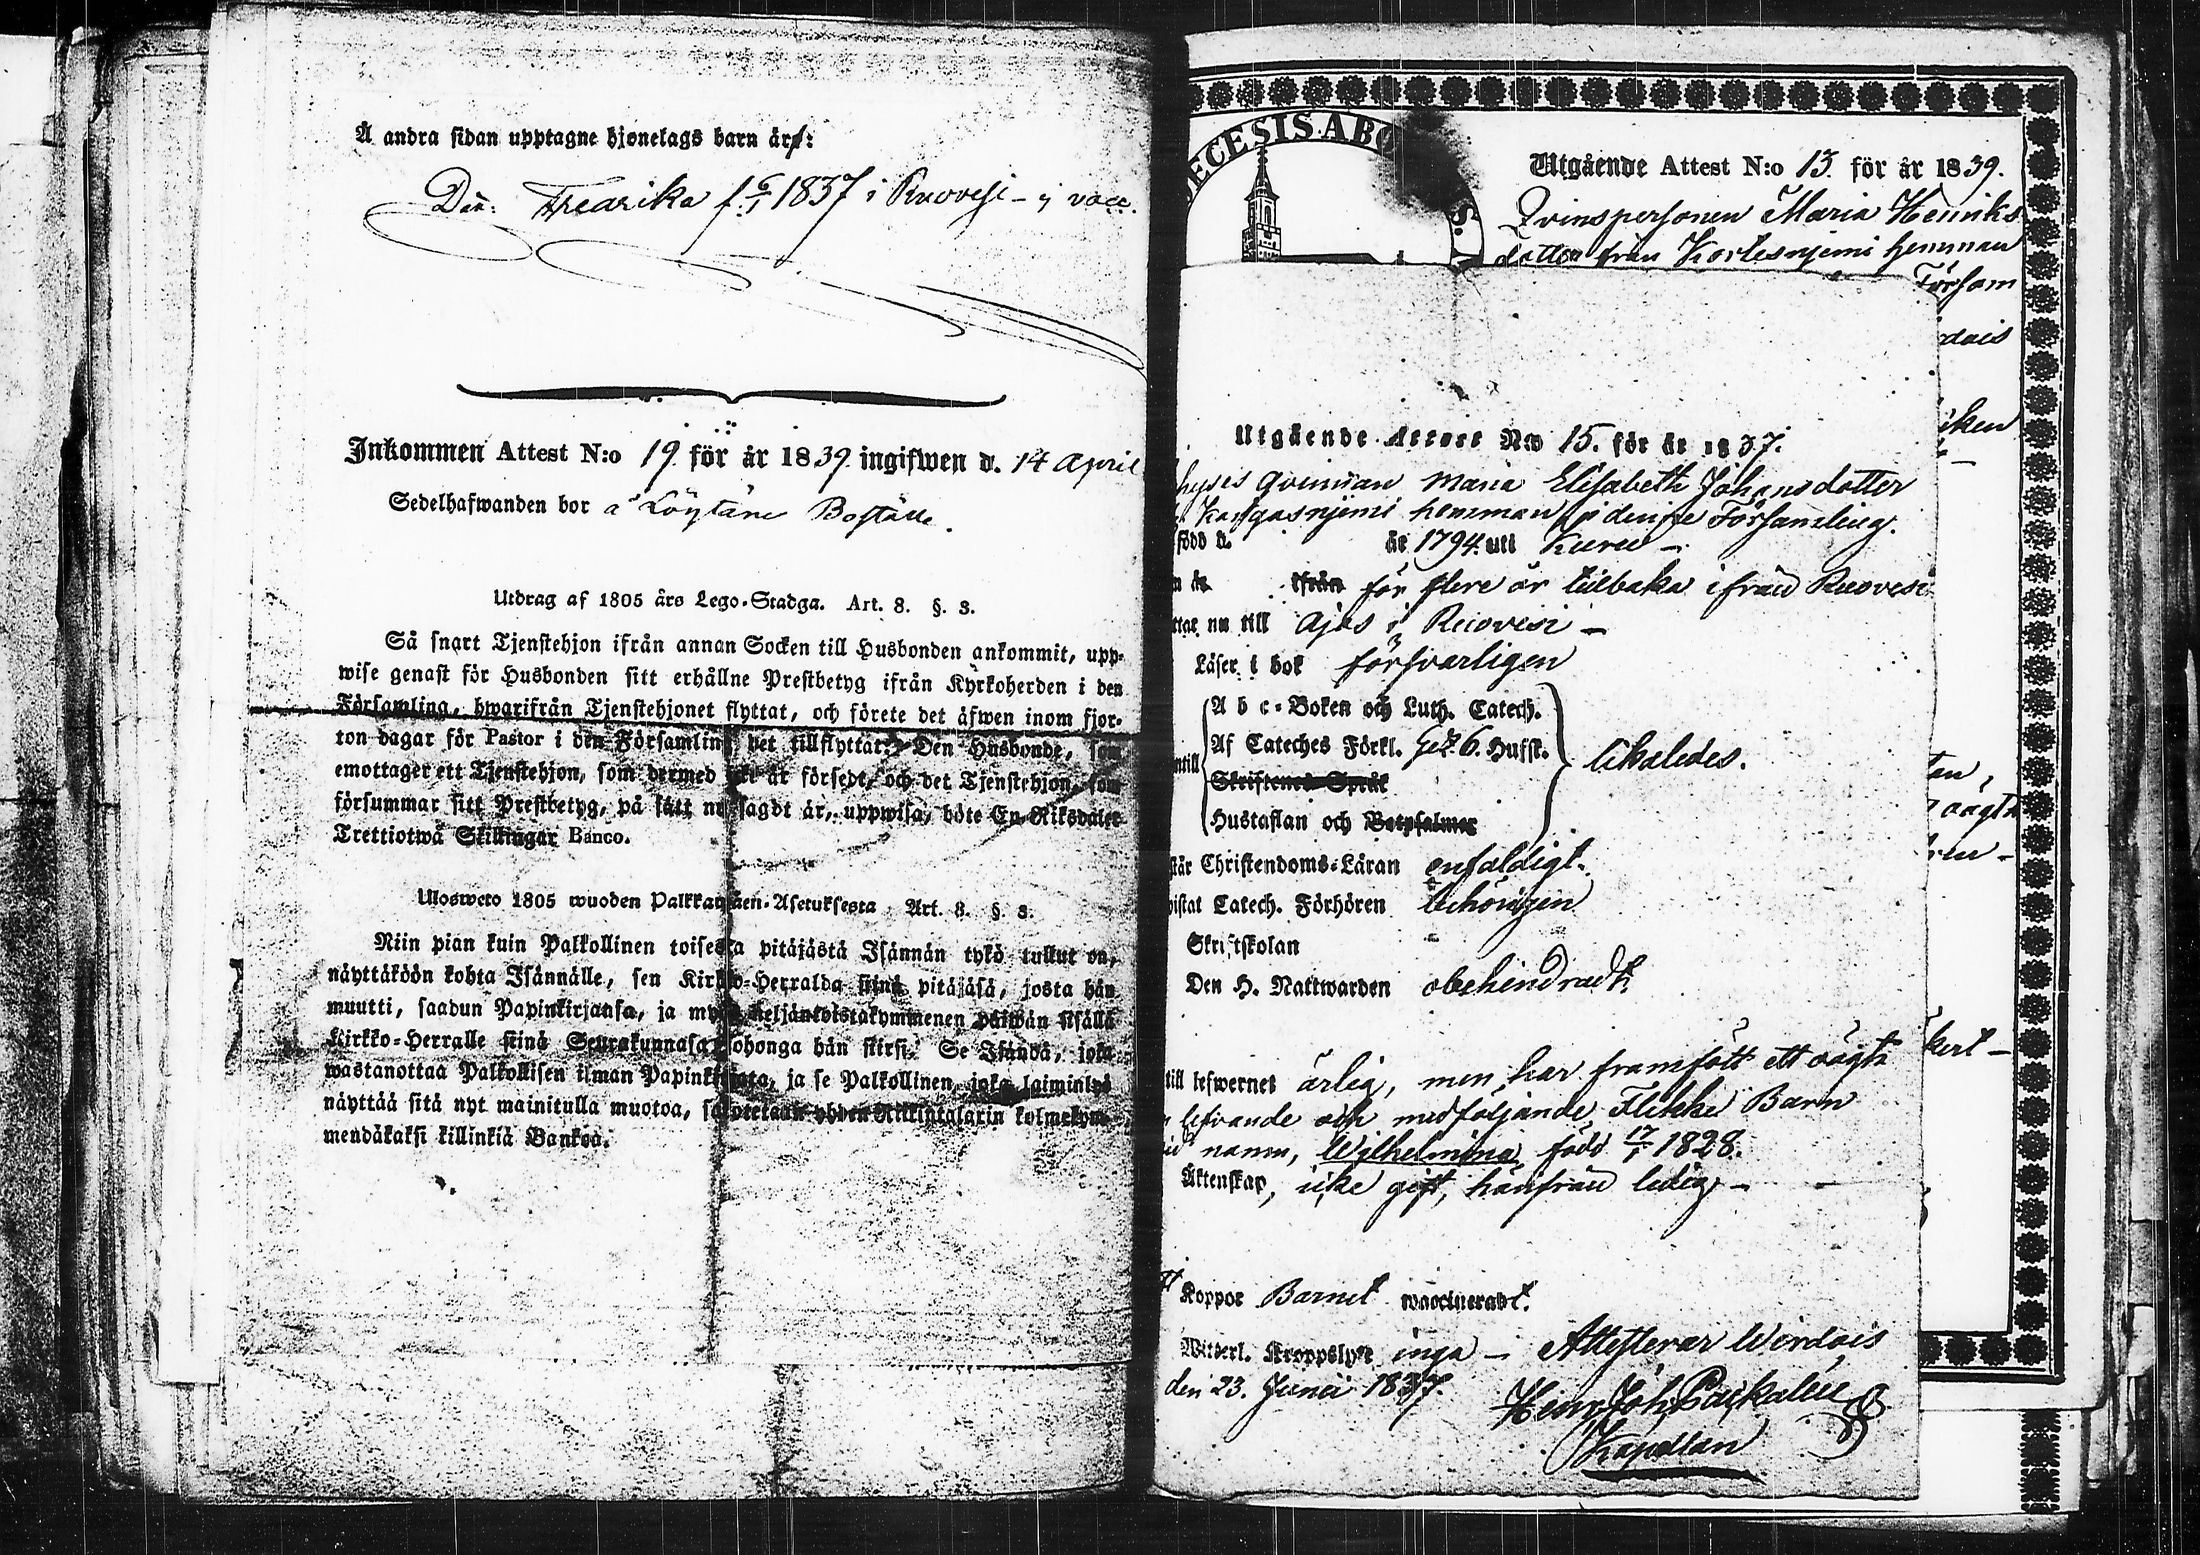 Å andra sidan upptagne hjonelags barn är:
Dot: Fredrika f. 6/1 1837 i Ruovesi - ej vacc.
Inkommen Attest N:o 19 för år 1839 ingifwen d. 14 April
Sedelhafwanden bor å Löytäne Boställe.
Utdrag af 1805 års Lego-Stadga. Art. 8. §. 3.
Så snart Tjenstehjon ifrån annan Socken till Husbonden ankommit, upp-
wise genast för Husbonden sitt erhållne Prestbetyg ifrån Kyrkoherden i den
Församling, hwarifrån Tjenstehjonet flyttat, och förete det äfwen inom fjor-
ton dagar för Pastor i den Församling det tillflyttat. Den Husbonde, som
emottager ett Tjenstehjon, som dermed ej är försedt, och det Tjenstehjon, som
försummar sitt Prestbetyg, på sätt nu sagdt är, uppwisa, böte En Riksdaler
Trettiotwå Skillingar Banco.
Ulosweto 1805 wuoden Palkkawäen-Asetuksesta Art. 8. §. 3.
Niin pian kuin Palkollinen toisesta pitäjästä Isännän tykö tullut on,
näyttäköön kohta Isännälle, sen Kirkko-Herralda siinä pitäjäsä, josta hän
muutti, saadun Papinkirjansa, ja myös neljäntoistakymmenen päiwän sisällä
Kirkko-Herralle siinä Seurakunnasa, johonga hän siirsi. Se Isändä, joka
wastanottaa Palkollisen ilman Papinkirjata, ja se Palkollinen, joka laiminlyö
näyttää sitä nyt mainitulla muotoa, sakotetaan yhden Riikintalarin kolmekym-
mendäkaksi killinkiä Bankoa.
DECESIS ABO S.
Utgående Attest N:o 13 för år 1839.
Qvinspersonen Maria Henriks
dotter från Kortesnjemi hemman
Försam
dois
iken
tan,
oägta
kert -
Utgående Attest No 15. för år 1837.
hyses qvinnan Maria Elisabeth Johansdotter
Kangasnjemi hemman i denne Församling.
född d. år 1794 uti Kuru -
ifrån för flere år tillbaka ifrån Ruovesi
ttar nu till Ajos i Ruovesi -
Läser i bok försvarligen
A b c-Boken och Luth. Catech.
Af Cateches Förkl. 6. Hufst.
ntill likaledes.
Skriftenes Språk
Hustaflan och Botpsalmer
står Christendoms-Läran enfaldigt.
wistat Catech. Förhören behörigen
Skriftskolan
Den H. Nattwarden obehindradt.
till lefwernet ärlig, men har framfött ett oägta
lefvande och medföljande Flikke Barn
namn, Wilhelmina född 17/1 1828.
Äktenskap, icke gift, härifrån ledig -
Koppor Barnet vaccineradt.
Witterl. Kroppslyte inga - Attesterar Wirdois
den 23. Junii 1837.
Henr. Joh.
Kapellan